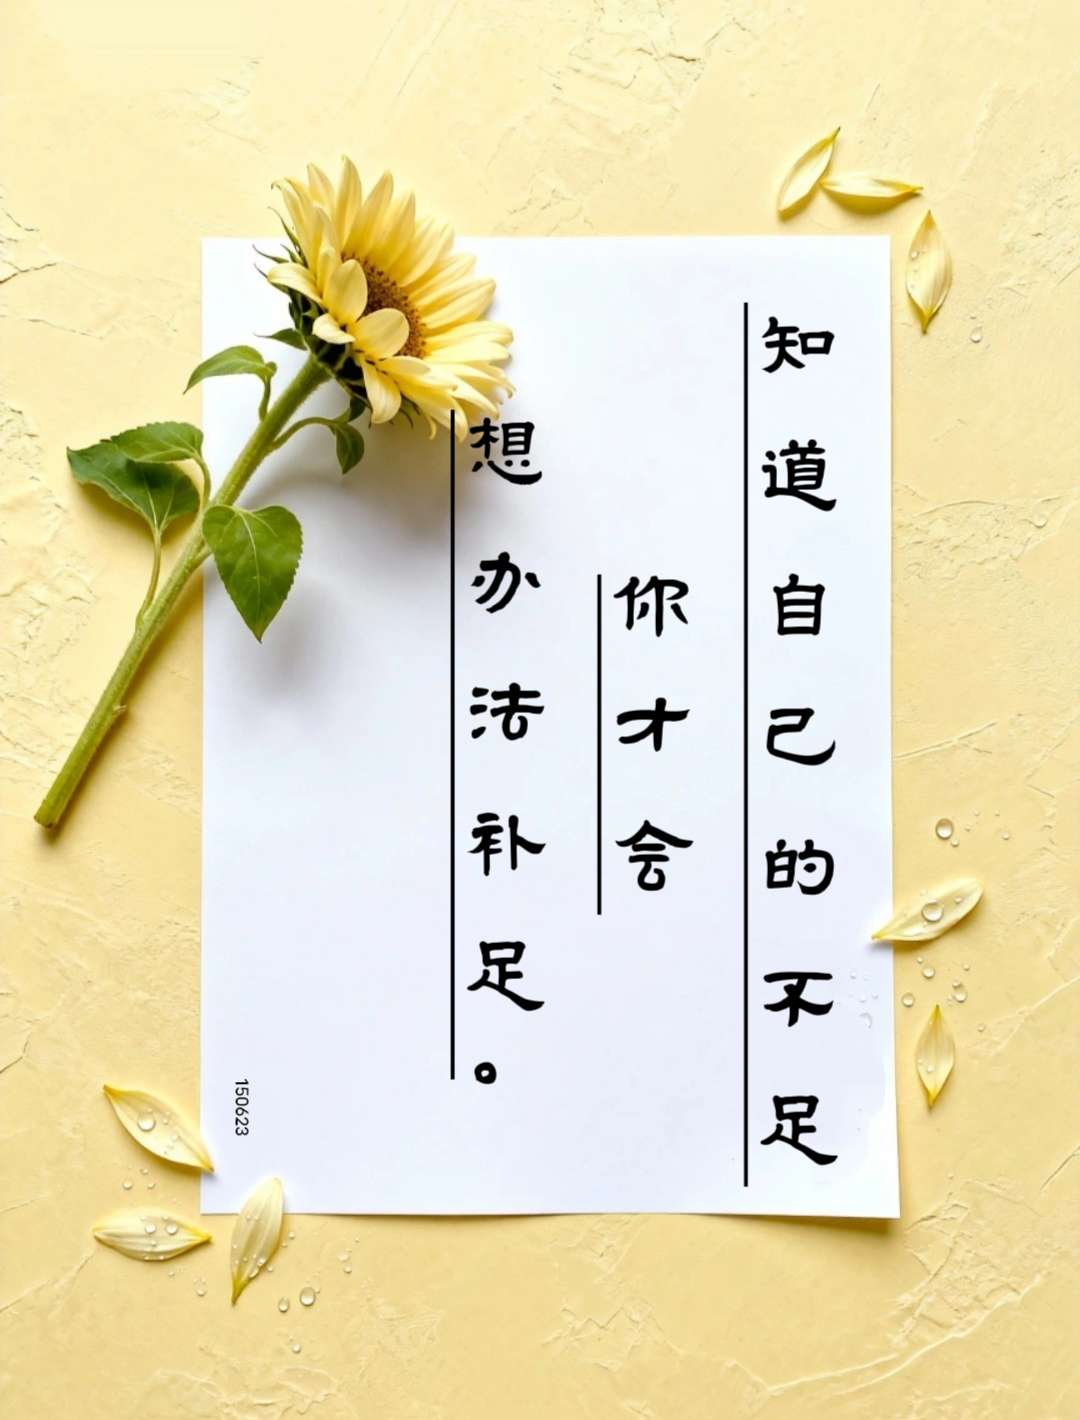 知道自己的不足
你才会
想办法补足。
150623